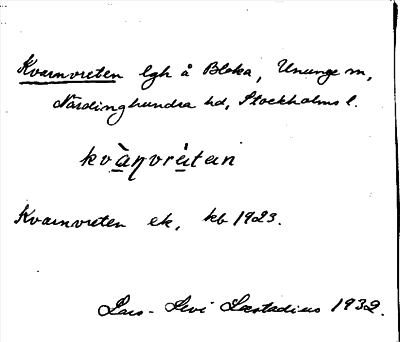 Kvarnvreten lgh å Bloka, Ununge sn,
Närdinghundra hd, Stockholms l.
kvàṇvrètan
Kvarnvreten ek, kb 1923.
Lars-Levi Læstadius 1932.